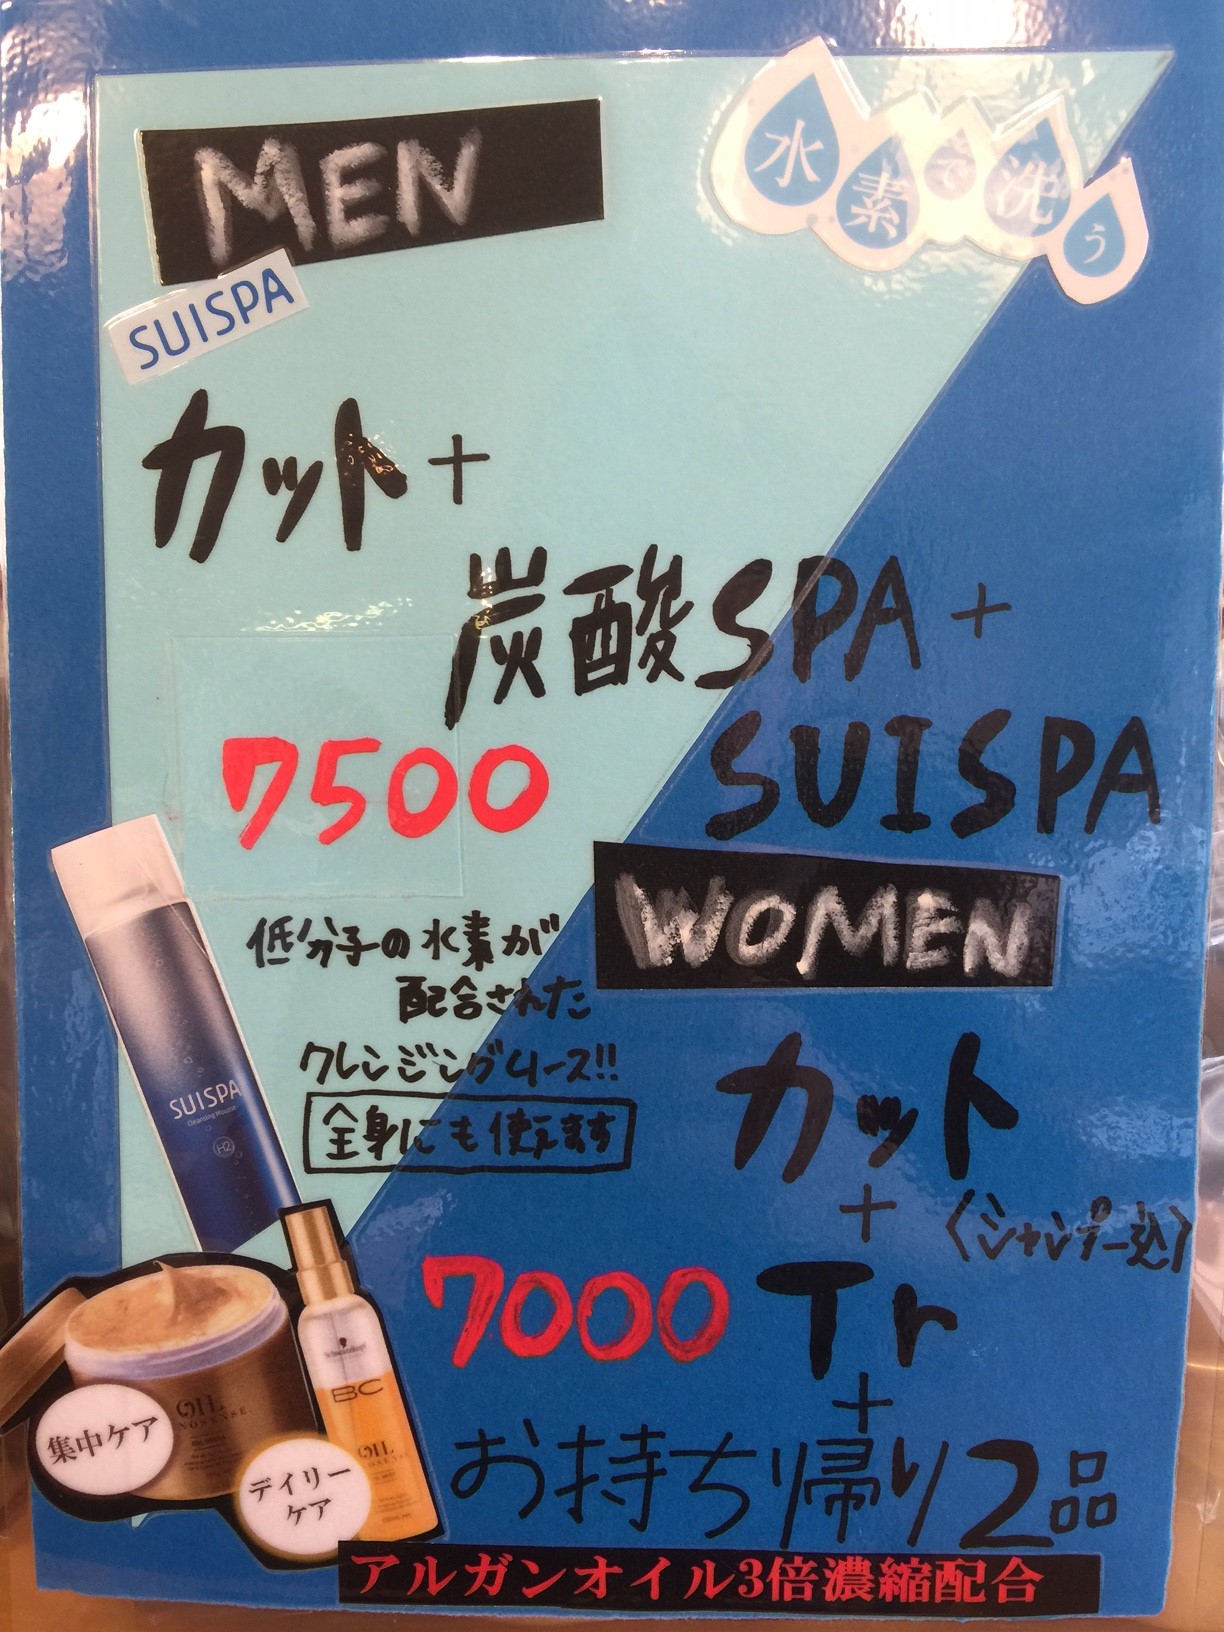 MEN
水素で洗う
SUISPA
カット+
炭酸SPA+
SUISPA
7500
WOMEN
低分子の水素が
配合された
クレンジングムース!!
全身にも使えます
SUISPA
Cleansing Mousse
H2
カット
+
〈シャンプー込〉
7000 Tr
+
お持ち帰り2品
BC
OIL
OIL
集中ケア
デイリー
ケア
アルガンオイル3倍濃縮配合